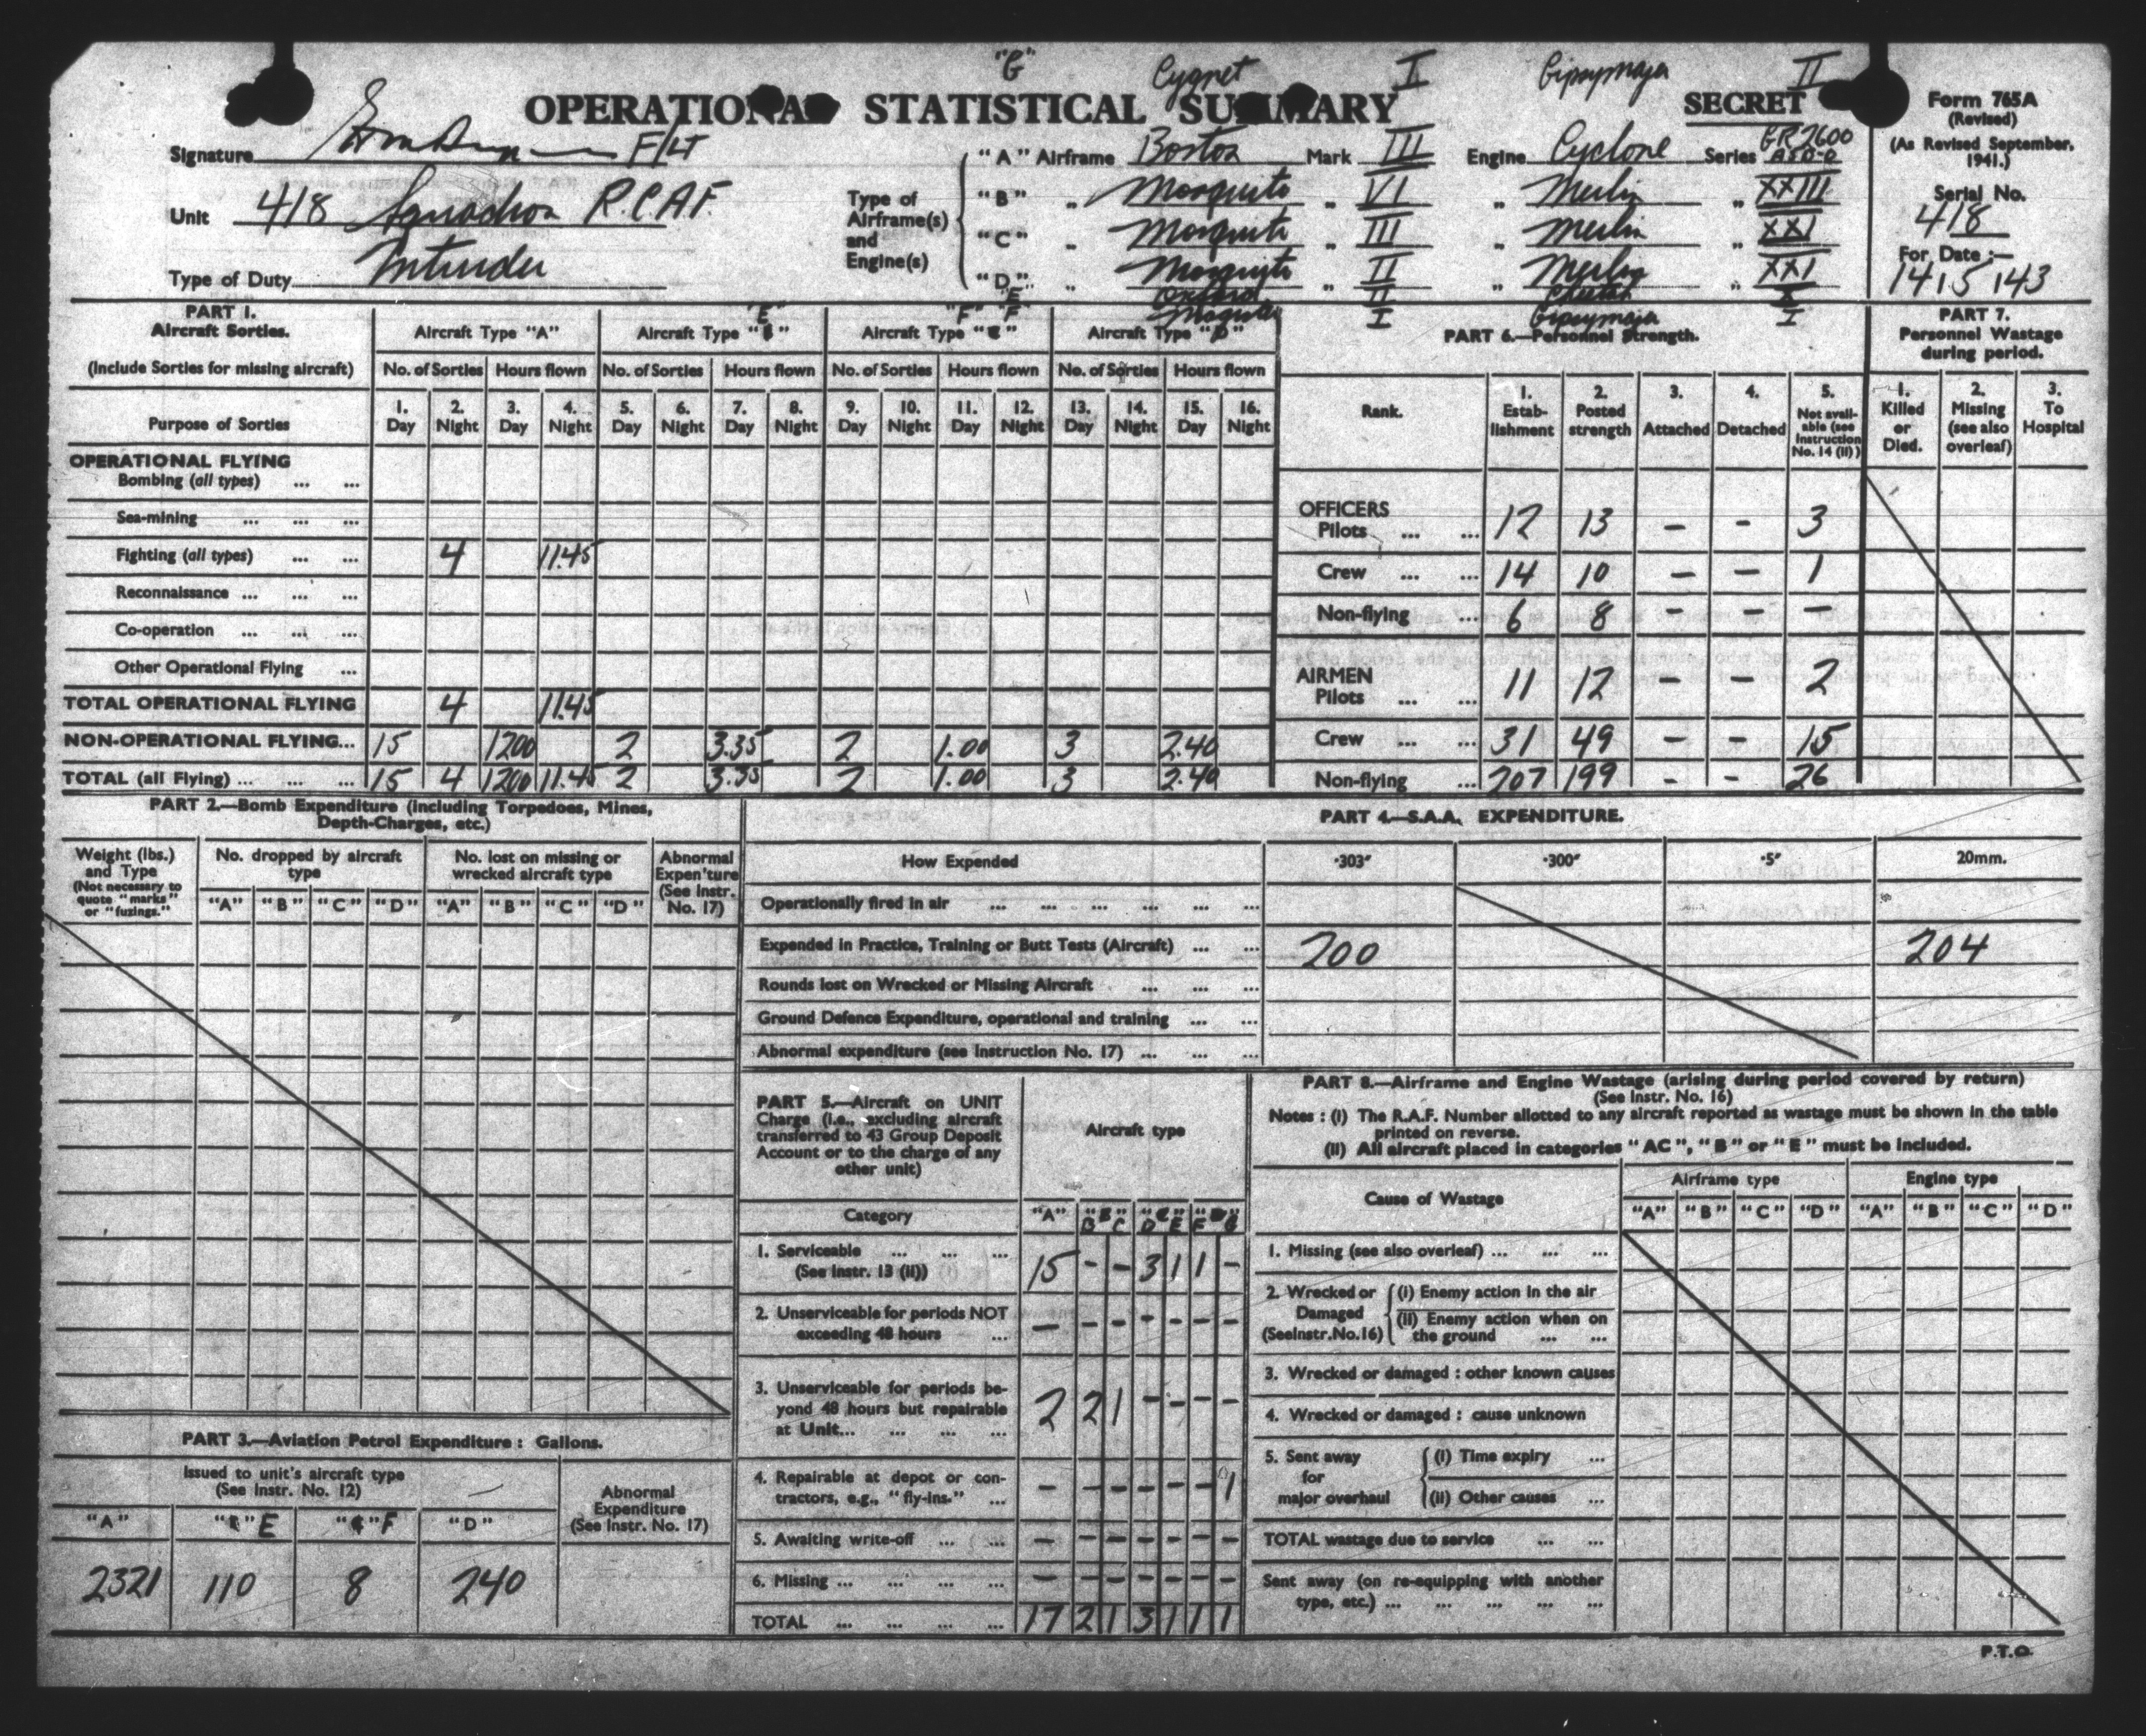 "G" Cygnet I Gipsymajor II
OPERATIONAL STATISTICAL SUMMARY SECRET
Form 765A
(Revised)
(As Revised September, 1941.)
Signature F/LT
Unit 418 Squadron R.C.A.F.
Type of Duty Intruder
Type of Airframe(s) and Engine(s)
"A" Airframe Boston Mark III Engine Cyclone Series GR2600 A5B-0
"B" „ Mosquito „ VI „ Merlin „ XXIII
"C" „ Mosquito „ III „ Merlin „ XXI
"D" „ Mosquito „ II „ Merlin „ XXI
"E" Oxford II Cheetah X
"F" Magister I Gipsymajor I
Serial No.
418
For Date :—
14 15 143
PART 1.
Aircraft Sorties.
(Include Sorties for missing aircraft)
Aircraft Type "A" Aircraft Type "E" Aircraft Type "F" Aircraft Type "D"
No. of Sorties Hours flown No. of Sorties Hours flown No. of Sorties Hours flown No. of Sorties Hours flown
Purpose of Sorties
1. Day 2. Night 3. Day 4. Night 5. Day 6. Night 7. Day 8. Night 9. Day 10. Night 11. Day 12. Night 13. Day 14. Night 15. Day 16. Night
OPERATIONAL FLYING
Bombing (all types) ... ...
Sea-mining ... ... ...
Fighting (all types) ... ... 4 11.45
Reconnaissance ... ... ...
Co-operation ... ... ...
Other Operational Flying ...
TOTAL OPERATIONAL FLYING 4 11.45
NON-OPERATIONAL FLYING... 15 1200 2 3.35 2 1.00 3 2.40
TOTAL (all Flying) ... ... ... 15 4 1200 11.45 2 3.35 2 1.00 3 2.40
PART 6.—Personnel Strength.
Rank. 1. Establishment 2. Posted strength 3. Attached 4. Detached 5. Not available (see Instruction No. 14 (ii))
OFFICERS
Pilots ... ... 12 13 - - 3
Crew ... ... 14 10 - - 1
Non-flying ... 6 8 - - -
AIRMEN
Pilots ... ... 11 12 - - 2
Crew ... ... 31 49 - - 15
Non-flying ... 207 199 - - 26
PART 7.
Personnel Wastage during period.
1. Killed or Died. 2. Missing (see also overleaf) 3. To Hospital
PART 2.—Bomb Expenditure (including Torpedoes, Mines,
Depth-Charges, etc.)
Weight (lbs.) and Type (Not necessary to quote "marks" or "fuzings.")
No. dropped by aircraft type
No. lost on missing or wrecked aircraft type
Abnormal Expen'ture (See Instr. No. 17)
"A" "B" "C" "D" "A" "B" "C" "D"
PART 4.—S.A.A. EXPENDITURE.
How Expended ·303″ ·300″ ·5″ 20mm.
Operationally fired in air ... ... ... ... ... ...
Expended in Practice, Training or Butt Tests (Aircraft) ... ... 200 204
Rounds lost on Wrecked or Missing Aircraft ... ... ...
Ground Defence Expenditure, operational and training ... ...
Abnormal expenditure (see Instruction No. 17) ... ... ...
PART 3.—Aviation Petrol Expenditure : Gallons.
Issued to unit's aircraft type
(See Instr. No. 12)
Abnormal Expenditure (See Instr. No. 17)
"A" "E" "F" "D"
2321 110 8 240
PART 5.—Aircraft on UNIT
Charge (i.e., excluding aircraft
transferred to 43 Group Deposit
Account or to the charge of any
other unit)
Aircraft type
Category "A" B C D E F G
1. Serviceable ... ... ... 15 - - 3 1 1 -
(See Instr. 13 (ii))
2. Unserviceable for periods NOT
exceeding 48 hours ... - - - - - - -
3. Unserviceable for periods be-
yond 48 hours but repairable
at Unit... ... ... ... 2 2 1 - - - -
4. Repairable at depot or con-
tractors, e.g., "fly-ins." ... - - - - - - 1
5. Awaiting write-off ... ... - - - - - - -
6. Missing ... ... ... ... - - - - - - -
TOTAL ... ... ... ... 17 2 1 3 1 1 1
PART 8.—Airframe and Engine Wastage (arising during period covered by return)
(See Instr. No. 16)
Notes : (i) The R.A.F. Number allotted to any aircraft reported as wastage must be shown in the table
printed on reverse.
(ii) All aircraft placed in categories "AC", "B" or "E" must be included.
Cause of Wastage Airframe type Engine type
"A" "B" "C" "D" "A" "B" "C" "D"
1. Missing (see also overleaf) ... ... ...
2. Wrecked or Damaged (See Instr. No. 16)
(i) Enemy action in the air
(ii) Enemy action when on
the ground ... ...
3. Wrecked or damaged : other known causes
4. Wrecked or damaged : cause unknown
5. Sent away for major overhaul
(i) Time expiry ...
(ii) Other causes ...
TOTAL wastage due to service ... ...
Sent away (on re-equipping with another
type, etc.) ... ... ... ... ...
P.T.O.